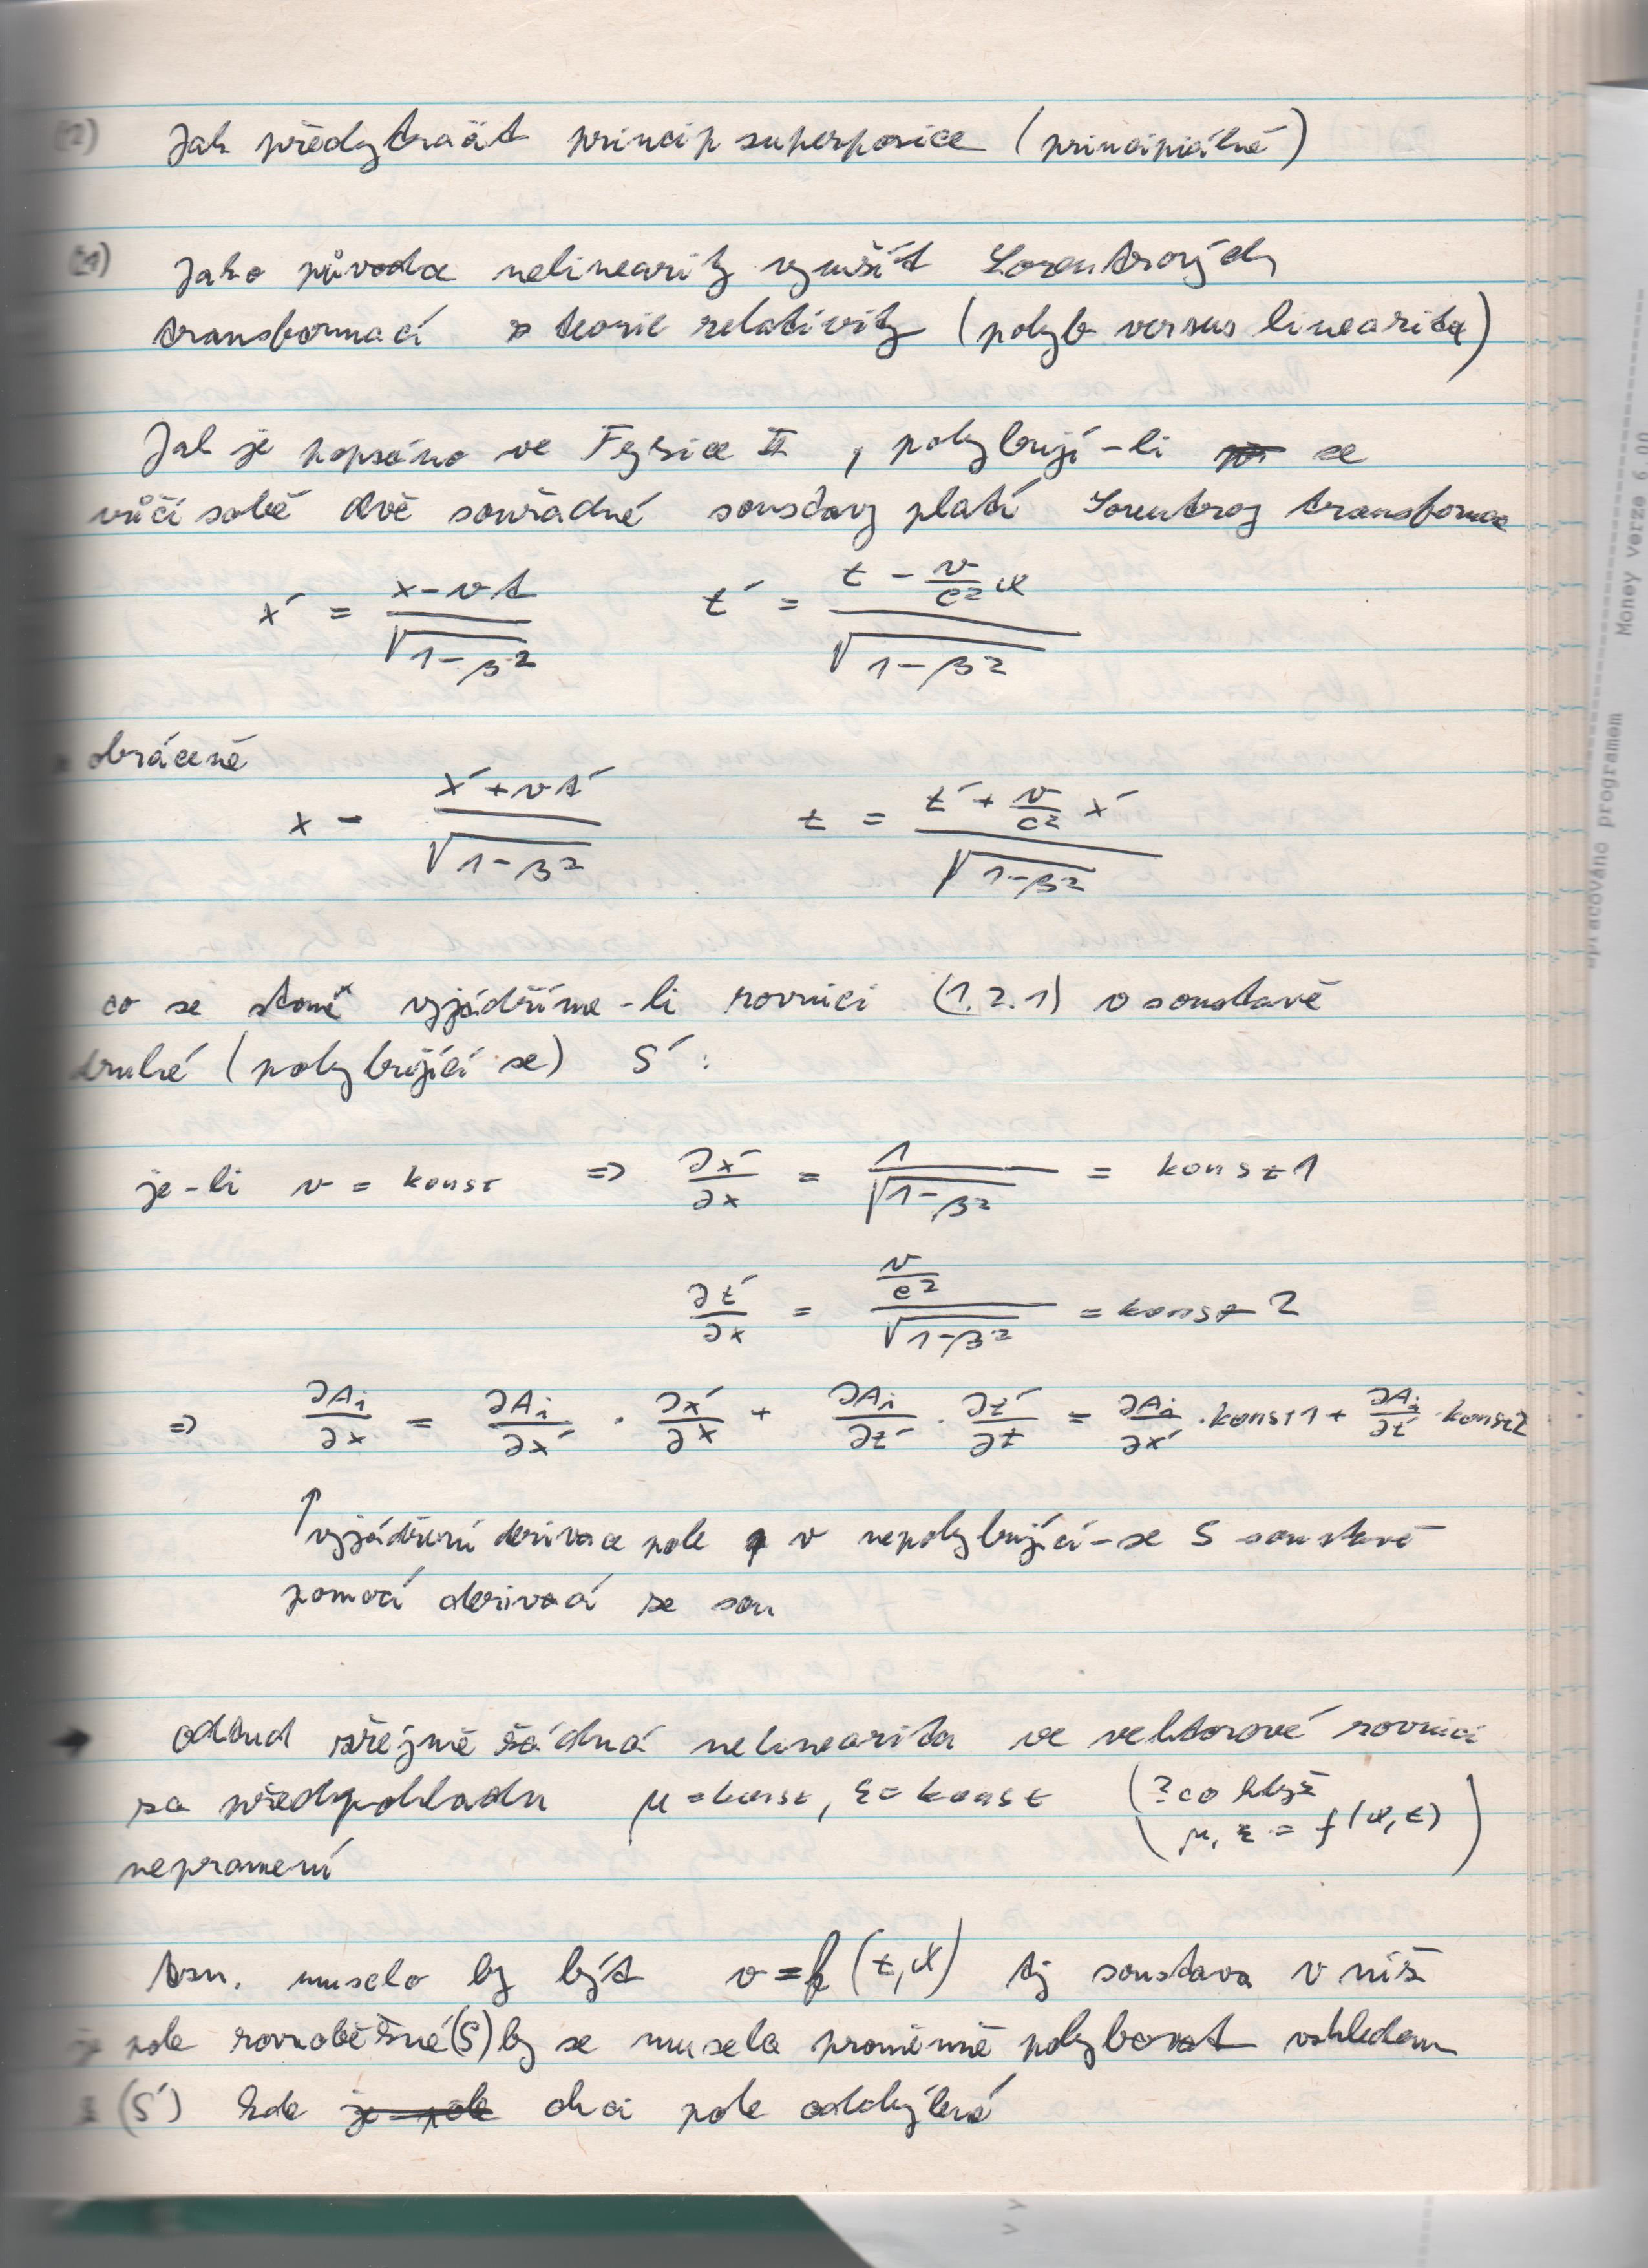 (2) Jak předytračit princip superposice (principiálně)
(1) Jako původce nelinearity využít Lorentzových
transformací z teorie relativity (pohyb versus linearita)
Jak je popsáno ve Fyzice II, pohybují-li se
vůči sobě dvě souřadné soustavy platí Lorentzovy transformace
x´ = (x - vt) / √(1-β²)    t´ = (t - v/c² x) / √(1-β²)
obráceně
x = (x´ + vt´) / √(1-β²)    t = (t´ + v/c² x´) / √(1-β²)
co se stane vyjádříme-li rovnici (1.2.1) v soustavě
druhé (pohybující se) S´:
je-li v = konst ⇒ ∂x´/∂x = 1/√(1-β²) = konst1
∂t´/∂x = (v/c²)/√(1-β²) = konst 2
⇒ ∂Ai/∂x = ∂Ai/∂x´ · ∂x´/∂x + ∂Ai/∂t´ · ∂t´/∂t = ∂Ai/∂x´ · konst1 + ∂Ai/∂t´ · konst2
↑ vyjádření derivace pole v nepohybující-se S soustavě
pomocí derivací ze sou
odtud zřejmě žádná nelinearita ve vektorové rovnici
za předpokladu μ = konst, ε = konst (? co když
μ, ε = f(x,t))
nepramení
tzn. muselo by být v = f(t,x) tj soustava v níž
je pole rovnoběžné (S) by se musela proměnně pohybovat vzhledem
k (S´) kde je pole chci pole odchýlené
Money verze 6.00
zpracováno programem